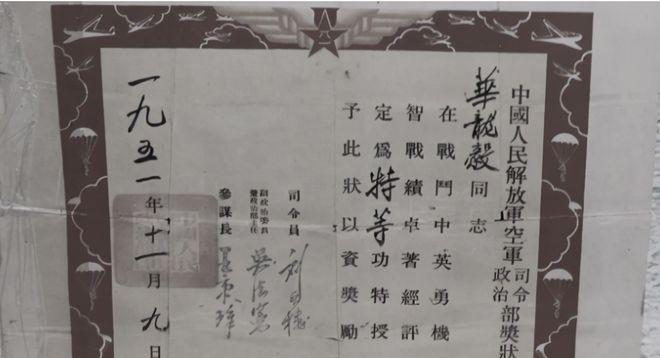 中國人民解放軍空軍司令政治部獎狀
華龍毅同志
在戰鬥中英勇機
智戰績卓著經評
定爲特等功特授
予此狀以資獎勵
司令員 刘亚楼
副政治委員兼政治部主任 吴法憲
參謀長 王秉璋
一九五一年十一月九日